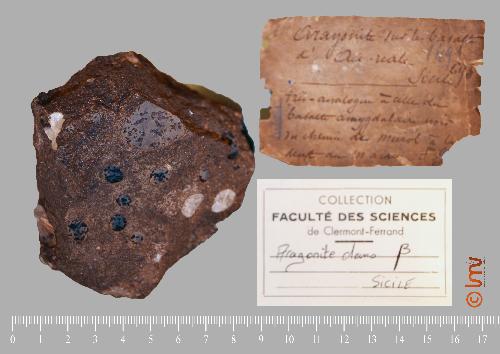 Aragonite sur le basalt
d'Aci-reale
Sicile
très-analogue à celle du
basalte amygdalaire
du chemin de murol à
COLLECTION
FACULTÉ DES SCIENCES
de Clermont-Ferrand
Aragonite dans β
SICILE
© lmv
0 1 2 3 4 5 6 7 8 9 10 11 12 13 14 15 16 17